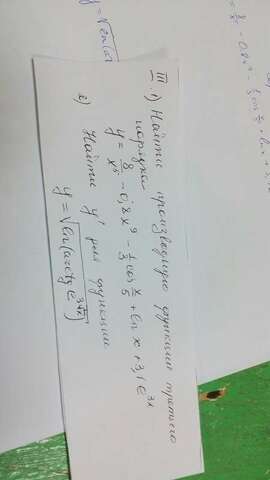 III 1) Найти производную функции третьего
порядка
y = 8/x⁵ - 0,8x⁹ - 1/3 cos x/5 + ln x + 3,1 e^3x
2) Найти y' для функции
y = √ln(arctg e^